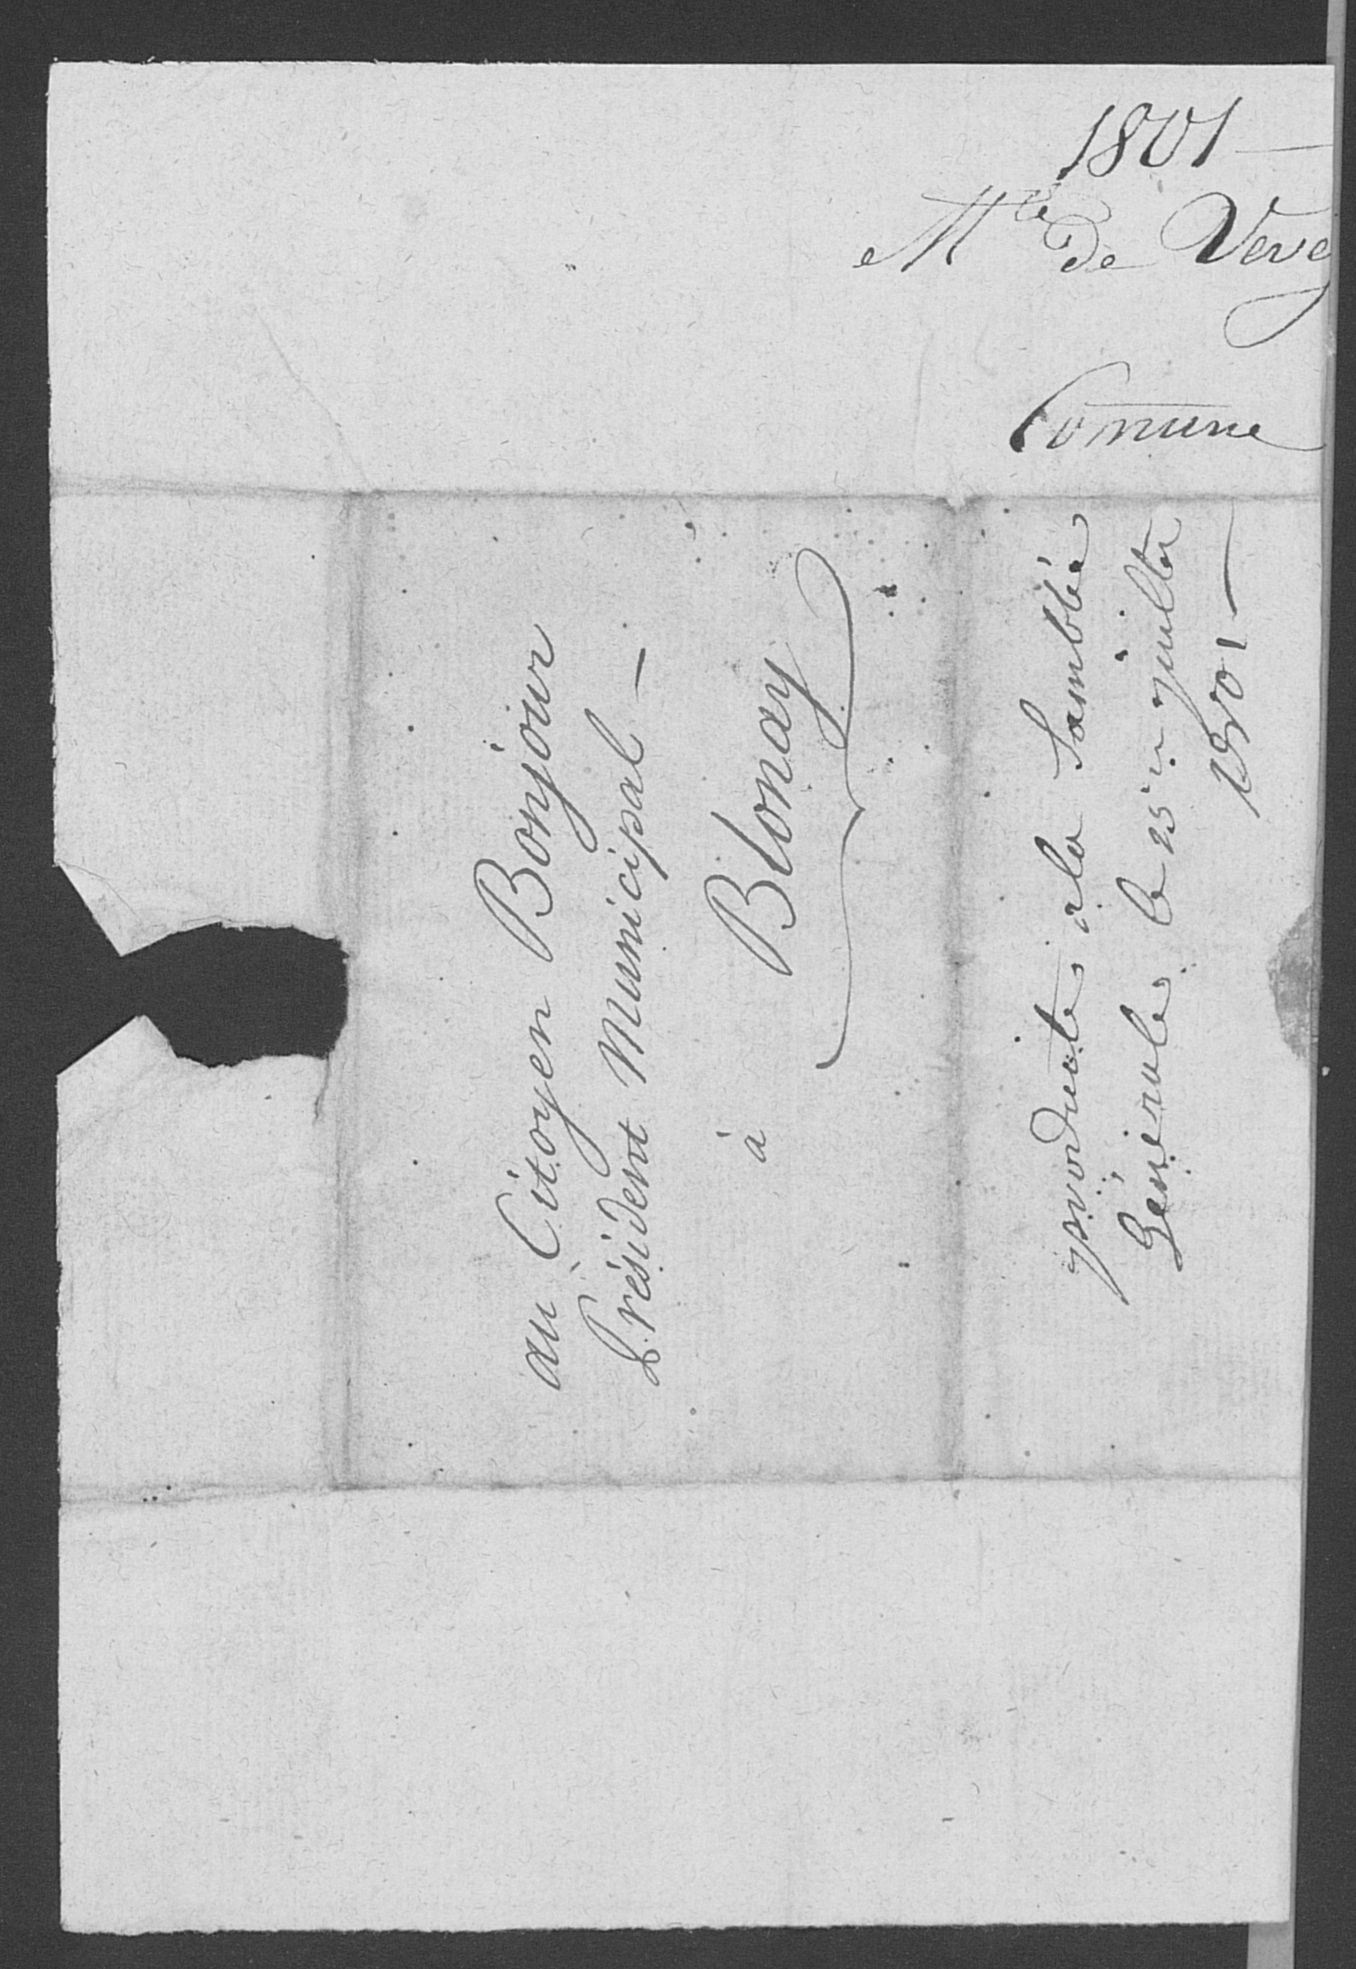 1801
Mté de Vevey
Comune
au Citoyen Bonjour
Président Municipal
à Blonay
produite à la Samblée
Générale le 25me juillet
1801